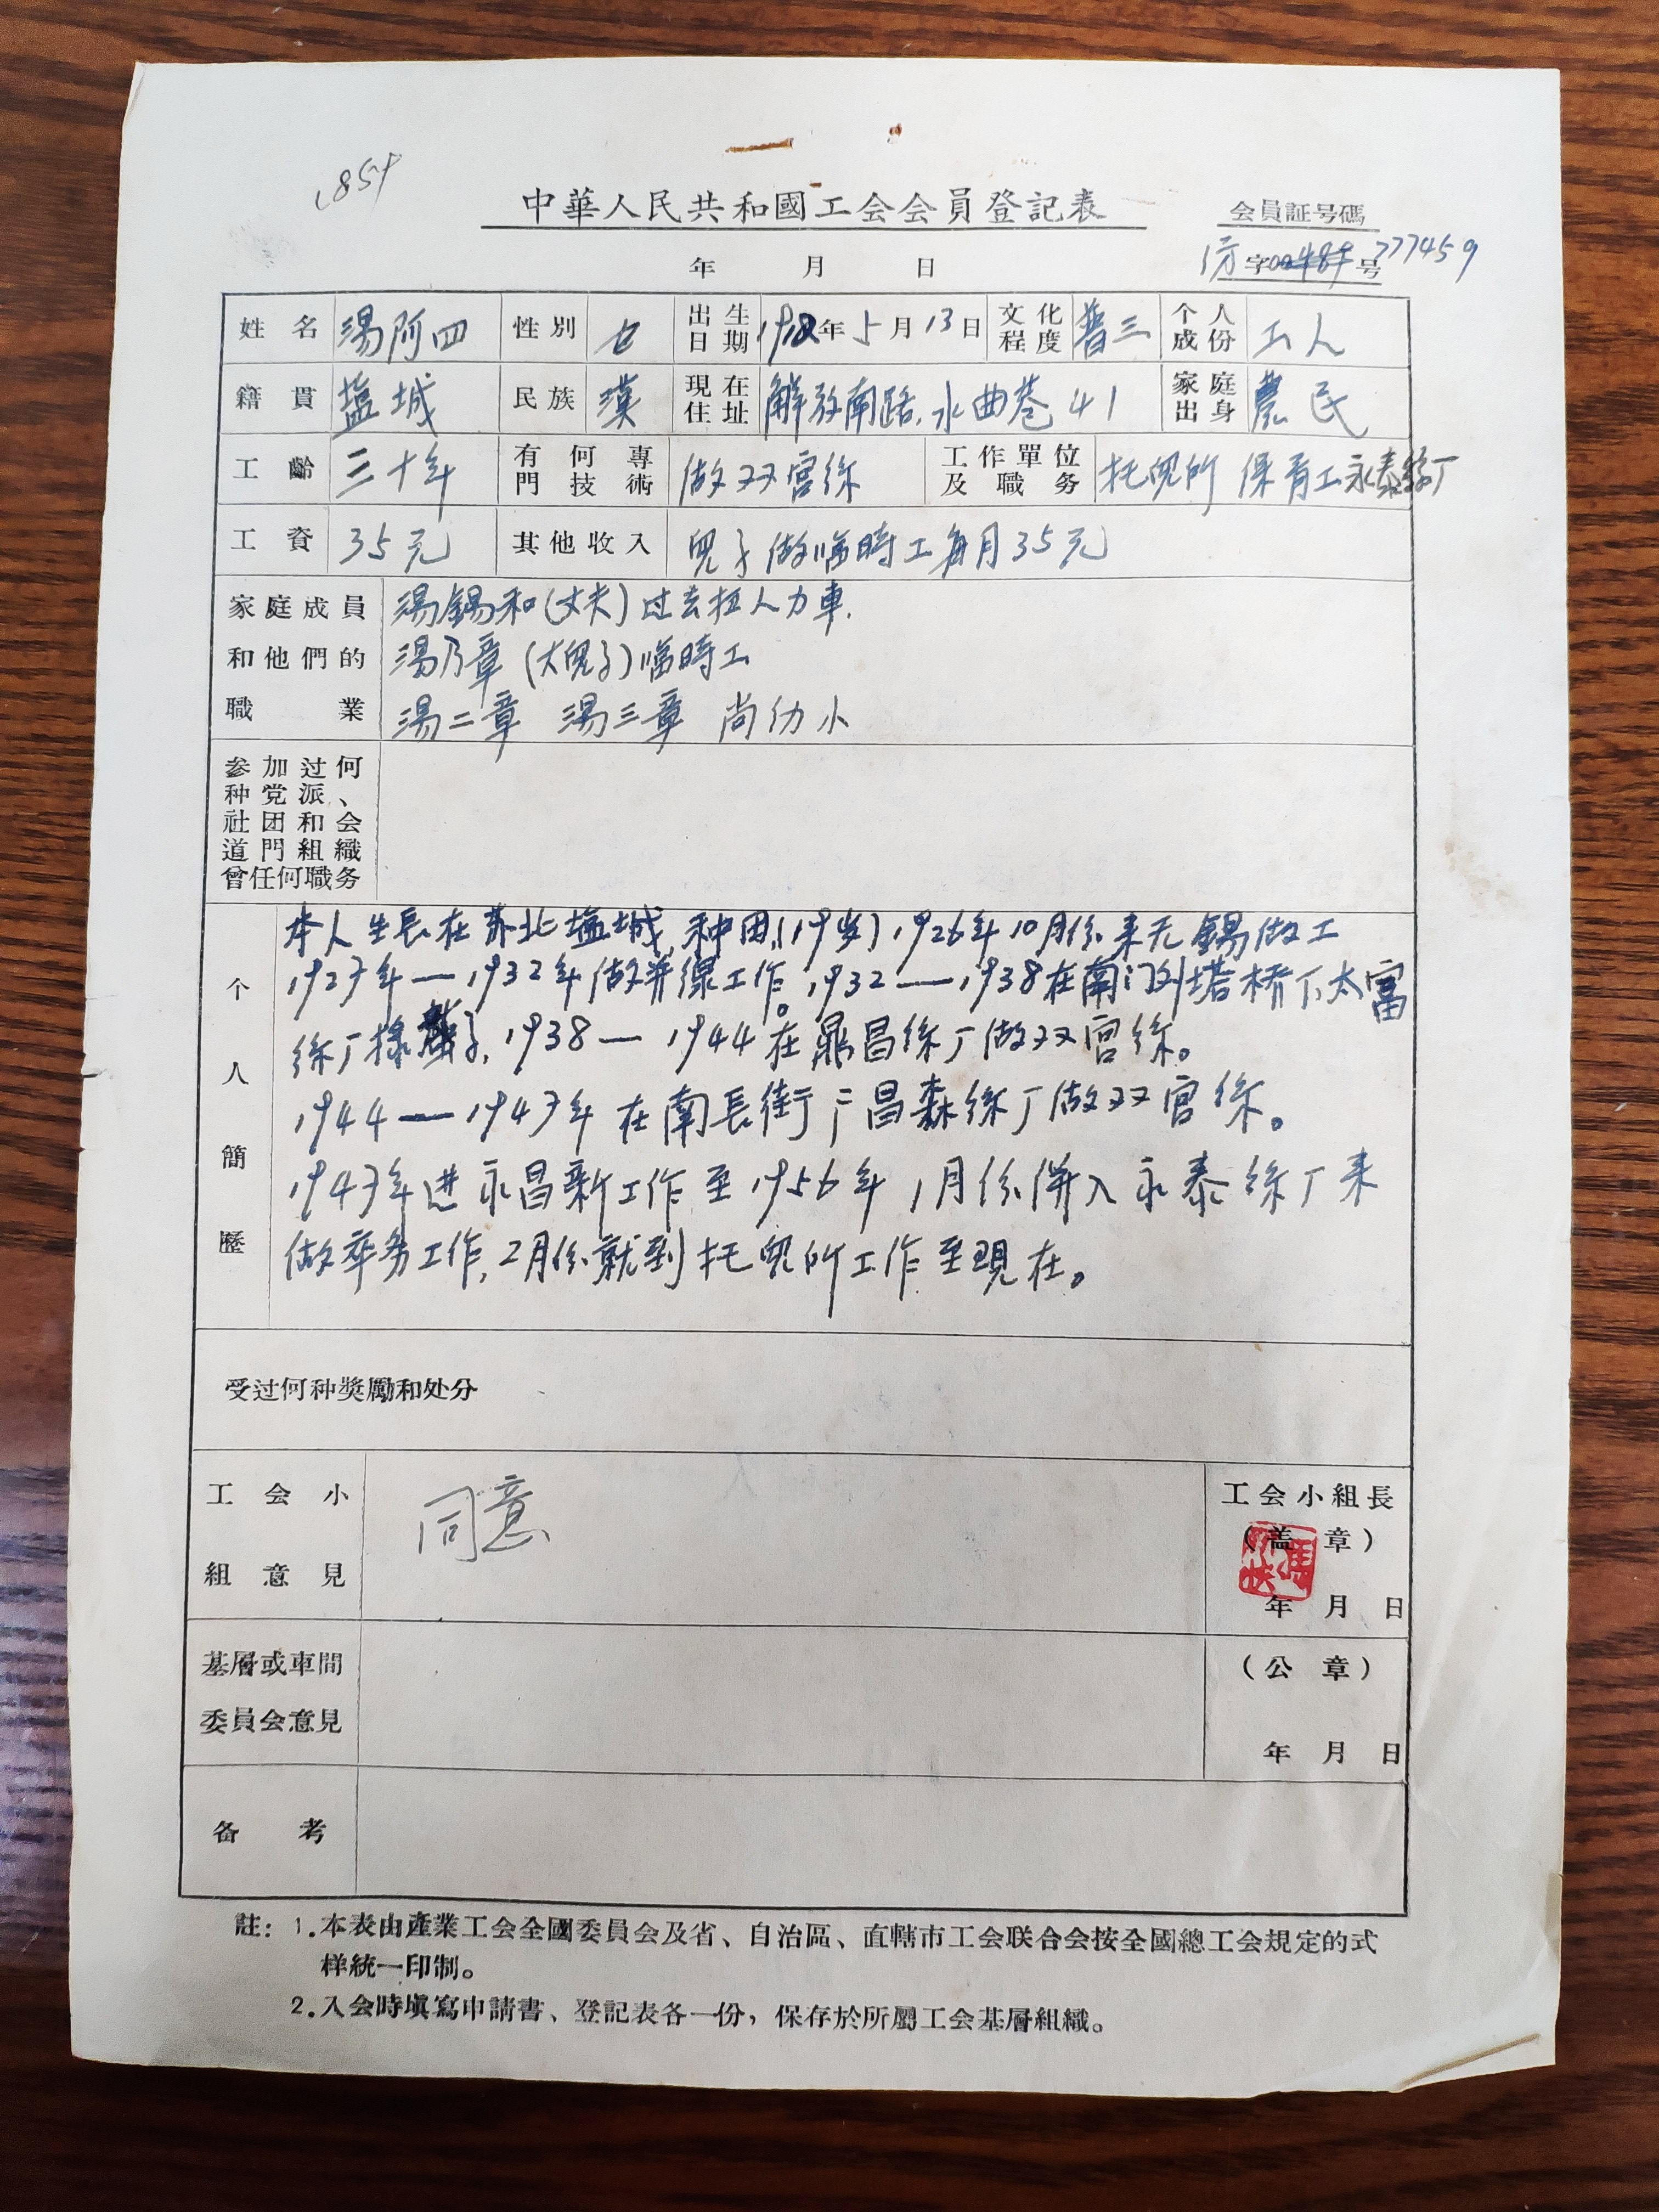 1854
中華人民共和國工会会員登記表
会員証号碼
年 月 日
纺字00484号777459
姓名 湯阿四 性別 女 出生日期 1912年5月13日 文化程度 普三 个人成份 工人
籍貫 塩城 民族 漢 現在住址 解放南路.水曲巷41 家庭出身 農民
工齡 三十年 有何專門技術 做双宮絲 工作單位及職务 托児所 保育工永泰絲厂
工資 35元 其他收入 児子做临時工每月35元
家庭成員 湯錫和(丈夫)过去拉人力車.
和他們的 湯乃章(大児子)临時工
職業 湯二章 湯三章 尚幼小
参加过何
种党派、
社团和会
道門組織
曾任何職务
个人簡歷
本人生長在苏北塩城,种田,(19岁)1926年10月份来无錫做工
1927年—1932年做并線工作。1932—1938在南门外塔桥下太富
絲厂揀繭子,1938—1944在鼎昌絲厂做双宮絲。
1944—1947年在南長街广昌森絲厂做双宮絲。
1947年进永昌新工作至1956年1月份併入永泰絲厂来
做杂务工作,2月份就到托児所工作至現在。
受过何种獎勵和处分
工会小組意見 同意
工会小組長
(盖章)
年 月 日
基層或車間
委員会意見
(公章)
年 月 日
备考
註：1.本表由產業工会全國委員会及省、自治區、直轄市工会联合会按全國總工会規定的式
样統一印制。
2.入会時塡寫申請書、登記表各一份，保存於所屬工会基層組織。